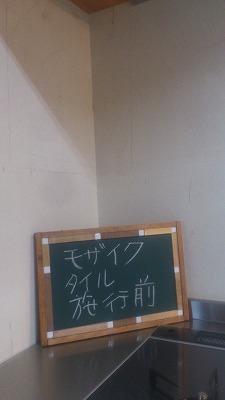 モザイク
タイル
施行前